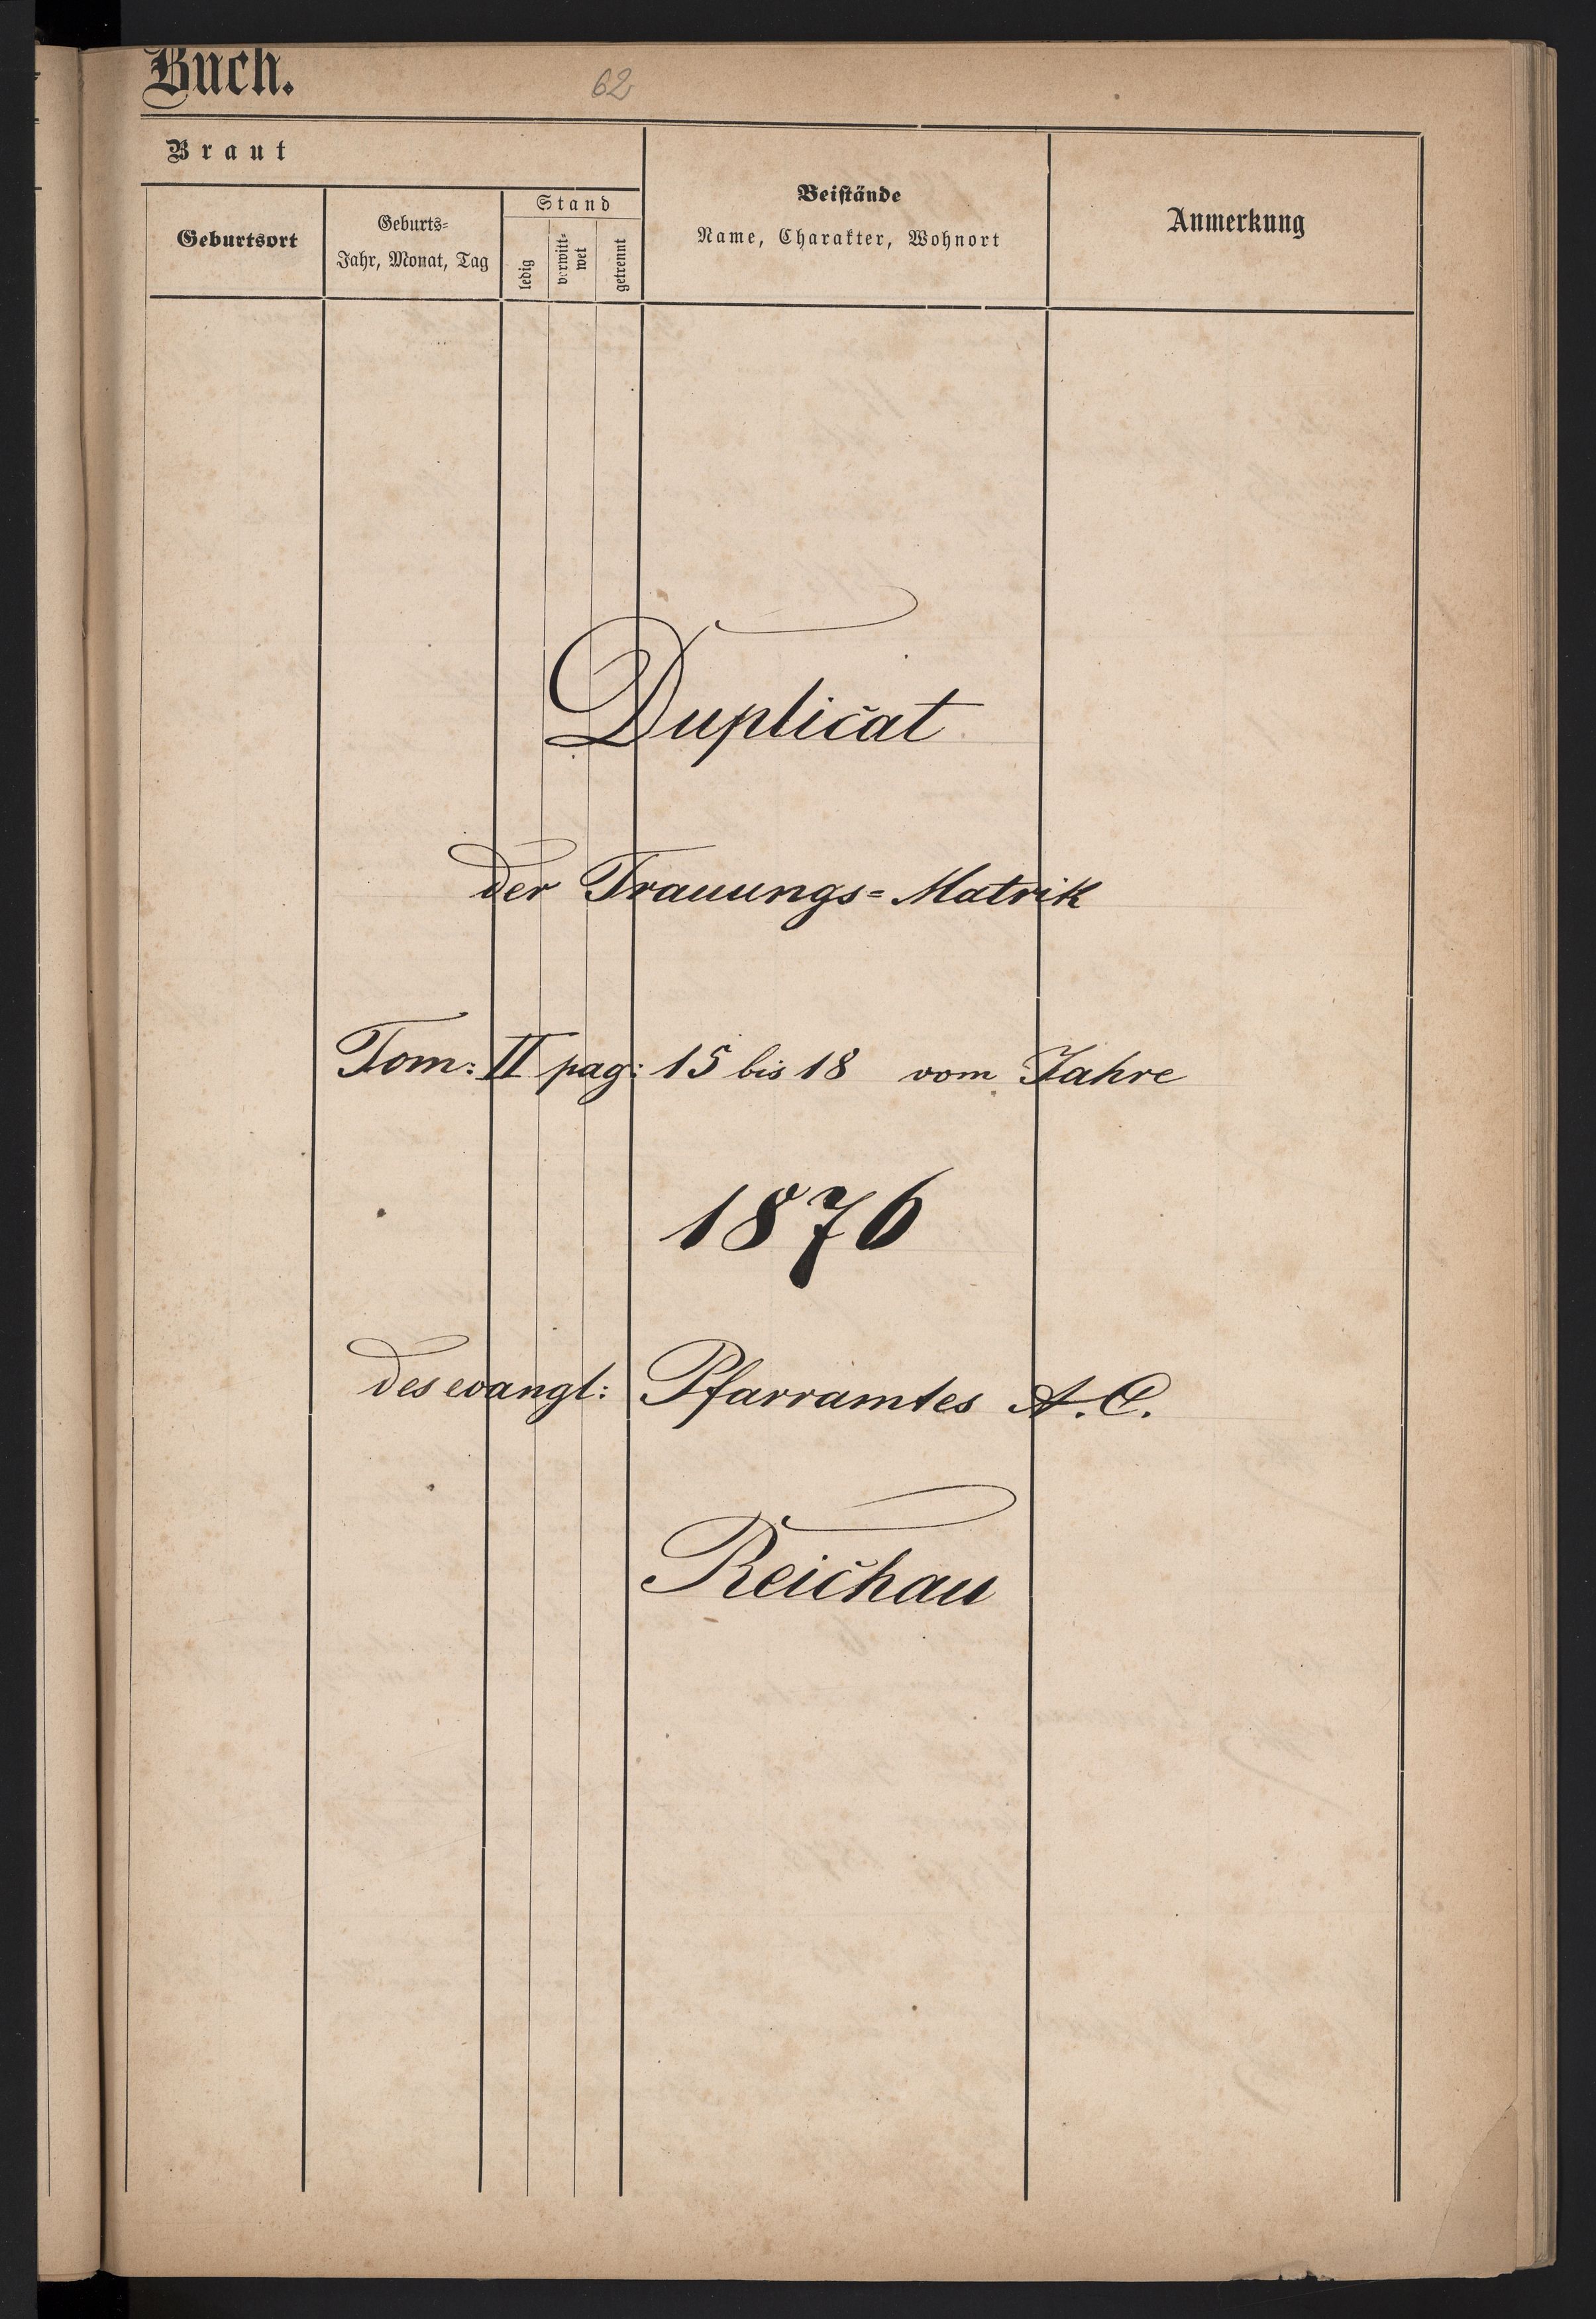 Buch.
62
Braut
Geburtsort
Geburts-
Jahr, Monat, Tag
Stand
ledig
verwitt-
wet
getrennt
Beistände
Name, Charakter, Wohnort
Anmerkung
Duplicat
der Trauungs=Matrik
Tom: II pag: 15 bis 18 vom Jahre
1876
des evangl: Pfarramtes A. C.
Reichau